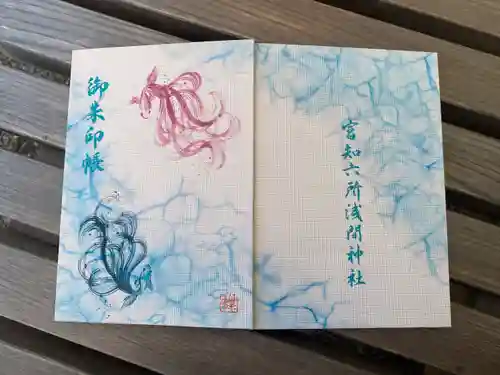 御朱印帳
富知六所浅間神社